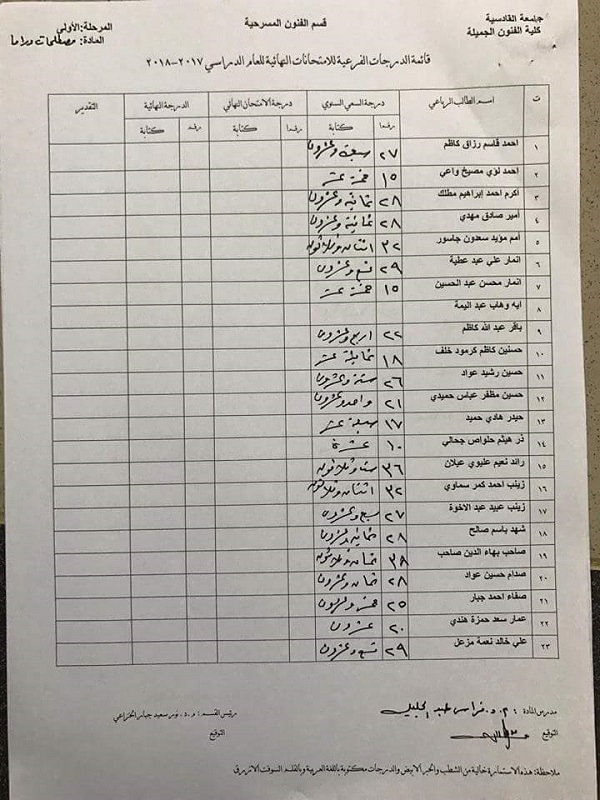 جامعة القادسية
كلية الفنون الجميلة
قسم الفنون المسرحية
المرحلة: الأولى
المادة: مصطلحات دراما
قائمة الدرجات الفرعية للامتحانات النهائية للعام الدراسي ٢٠١٧-٢٠١٨
ت اسم الطالب الرباعي درجة السعي السنوي درجة الامتحان النهائي الدرجة النهائية التقدير
رقما كتابة رقما كتابة رقما كتابة
١ احمد قاسم رزاق كاظم ٢٧ سبعة وعشرون
٢ احمد لؤي مصيخ واعي ١٥ خمسة عشر
٣ أكرم احمد إبراهيم مطلك ٢٨ ثمانية وعشرون
٤ أمير صادق مهدي ٢٨ ثمانية وعشرون
٥ أمم مؤيد سعدون جاسور ٣٢ اثنان وثلاثون
٦ انمار علي عبد عطية ٢٩ تسع وعشرون
٧ انمار محسن عبد الحسين ١٥ خمسة عشر
٨ ايه وهاب عبد اليمة
٩ باقر عبد الله كاظم ٢٢ اربع وعشرون
١٠ حسنين كاظم كرمود خلف ١٨ ثمانية عشر
١١ حسين رشيد عواد ٢٦ ستة وعشرون
١٢ حسين مظفر عباس حميدي ٢١ واحد وعشرون
١٣ حيدر هادي حميد ١٧ سبعة عشر
١٤ ذر هيثم حلواص جحالي ١٠ عشرة
١٥ رائد نعيم عليوي عيلان ٣٦ ست وثلاثون
١٦ زينب احمد كمر سماوي ٣٢ اثنان وثلاثون
١٧ زينب عبيد عبد الاخوة ٢٧ سبع وعشرون
١٨ شهد باسم صالح ٢٨ ثمانية وعشرون
١٩ صاحب بهاء الدين صاحب ٣٨ ثمان وثلاثون
٢٠ صدام حسين عواد ٢٨ ثمان وعشرون
٢١ صفاء احمد جبار ٢٥ خمس وعشرون
٢٢ عمار سعد حمزة هندي ٢٠ عشرون
٢٣ علي خالد نعمة مزعل ٢٩ تسع وعشرون
مدرس المادة: م.د. فراس عبد الجليل
رئيس القسم: م.د. نور سعيد جبار الخزاعي
التوقيع
التوقيع
ملاحظة: هذه الاستمارة خالية من الشطب والحبر الابيض والدرجات مكتوبة باللغة العربية وبالقلم السوفت الازرق